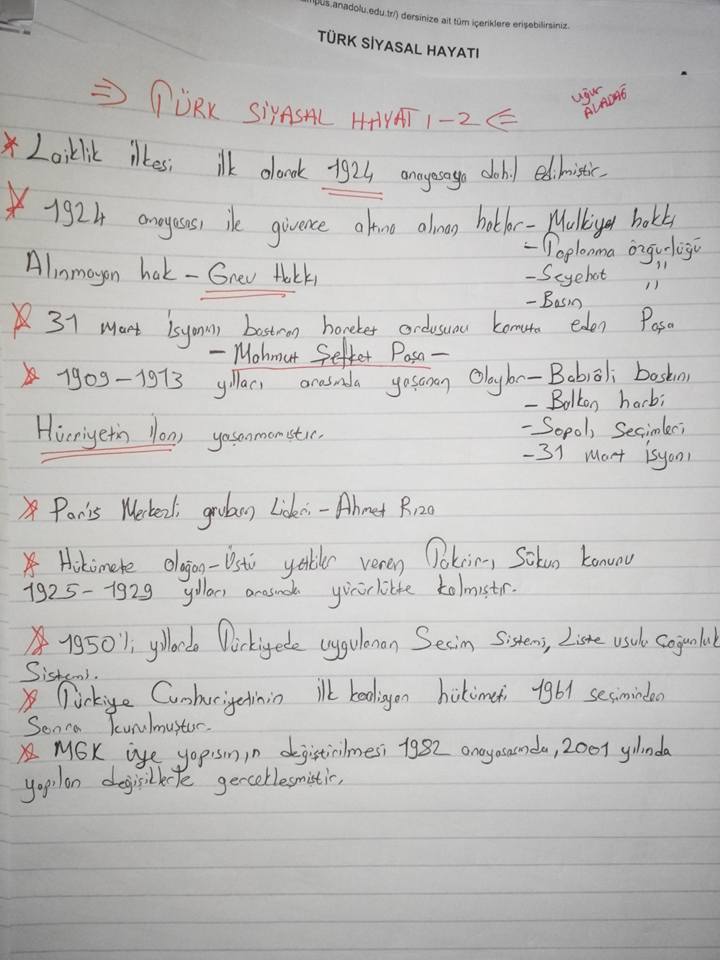 mpus.anadolu.edu.tr/) dersinize ait tüm içeriklere erişebilirsiniz.
TÜRK SİYASAL HAYATI
⇒ TÜRK SİYASAL HAYATI 1-2 ⇐
Uğur
ALADAĞ
Laiklik ilkesi ilk olarak 1924 anayasaya dahil edilmiştir.
1924 anayasası ile güvence altına alınan haklar - Mulkiyet hakkı
- Toplanma özgürlüğü
Alınmayan hak - Grev Hakkı
- Seyehat "
- Basın "
31 mart isyanını bastıran hareket ordusunu komuta eden Paşa
- Mahmut Şefket Paşa -
1909-1913 yılları arasında yaşanan Olaylar - Babıâli baskını
- Balkan harbi
Hürriyetin ilanı yaşanmamıştır.
- Sopalı Seçimleri
- 31 Mart İsyanı
Paris Merkezli grubun Lideri - Ahmet Rıza
Hükümete Olağan-Üstü yetkiler veren Takrir-ı Sükun kanunu
1925-1929 yılları arasında yürürlükte kalmıştır.
1950'li yıllarda Türkiyede uygulanan Seçim Sistemi, Liste usulu çoğunluk
Sistemi.
Türkiye Cumhuriyetinin ilk koalisyon hükümeti 1961 seçiminden
Sonra kurulmuştur.
MGK üye yapısının değiştirilmesi 1982 anayasasında, 2001 yılında
yapılan değişiklerle gercekleşmiştir.